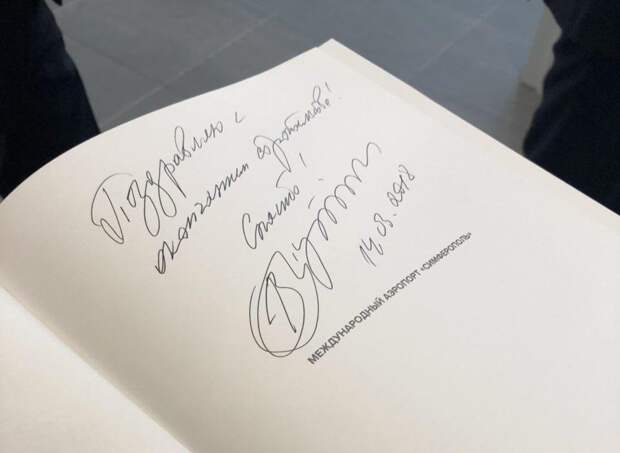 Поздравляю с
окончанием строительства!
Спасибо!
14.03.2018
МЕЖДУНАРОДНЫЙ АЭРОПОРТ «СИМФЕРОПОЛЬ»